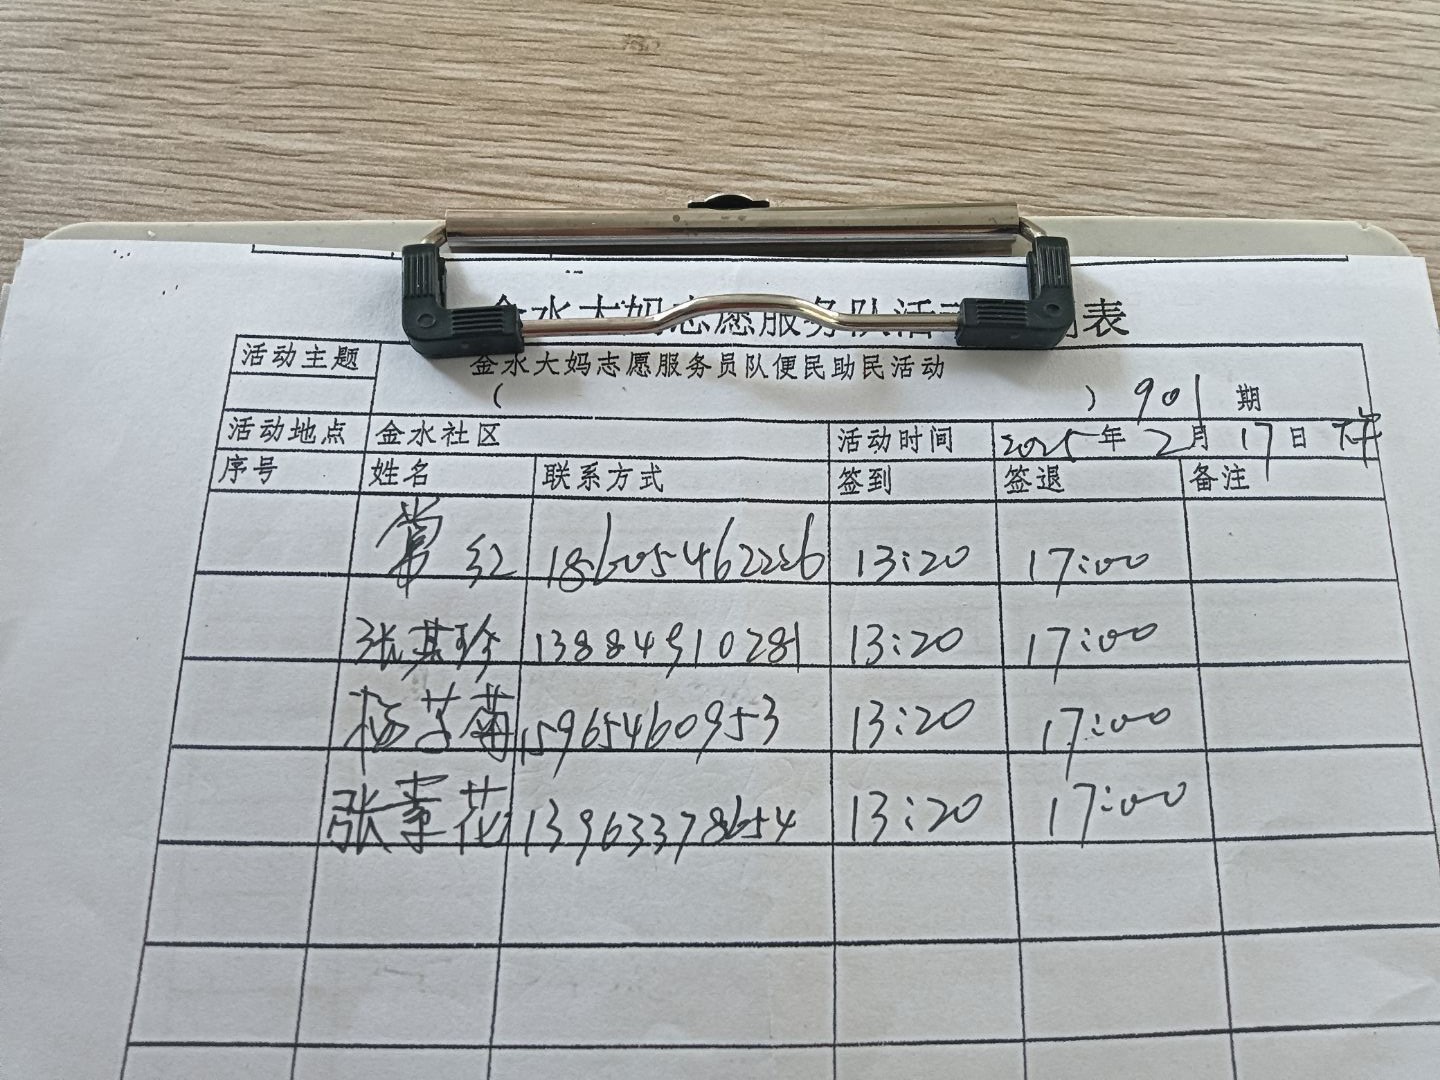 金水大妈志愿服务队活 表
活动主题 金水大妈志愿服务员队便民助民活动
( ) 901 期
活动地点 金水社区 活动时间 2025年 2月 17日 下午
序号 姓名 联系方式 签到 签退 备注
常红 18605462226 13:20 17:00
张其珍 13884910281 13:20 17:00
杨芳菊 15965460953 13:20 17:00
张莲花 13963378654 13:20 17:00